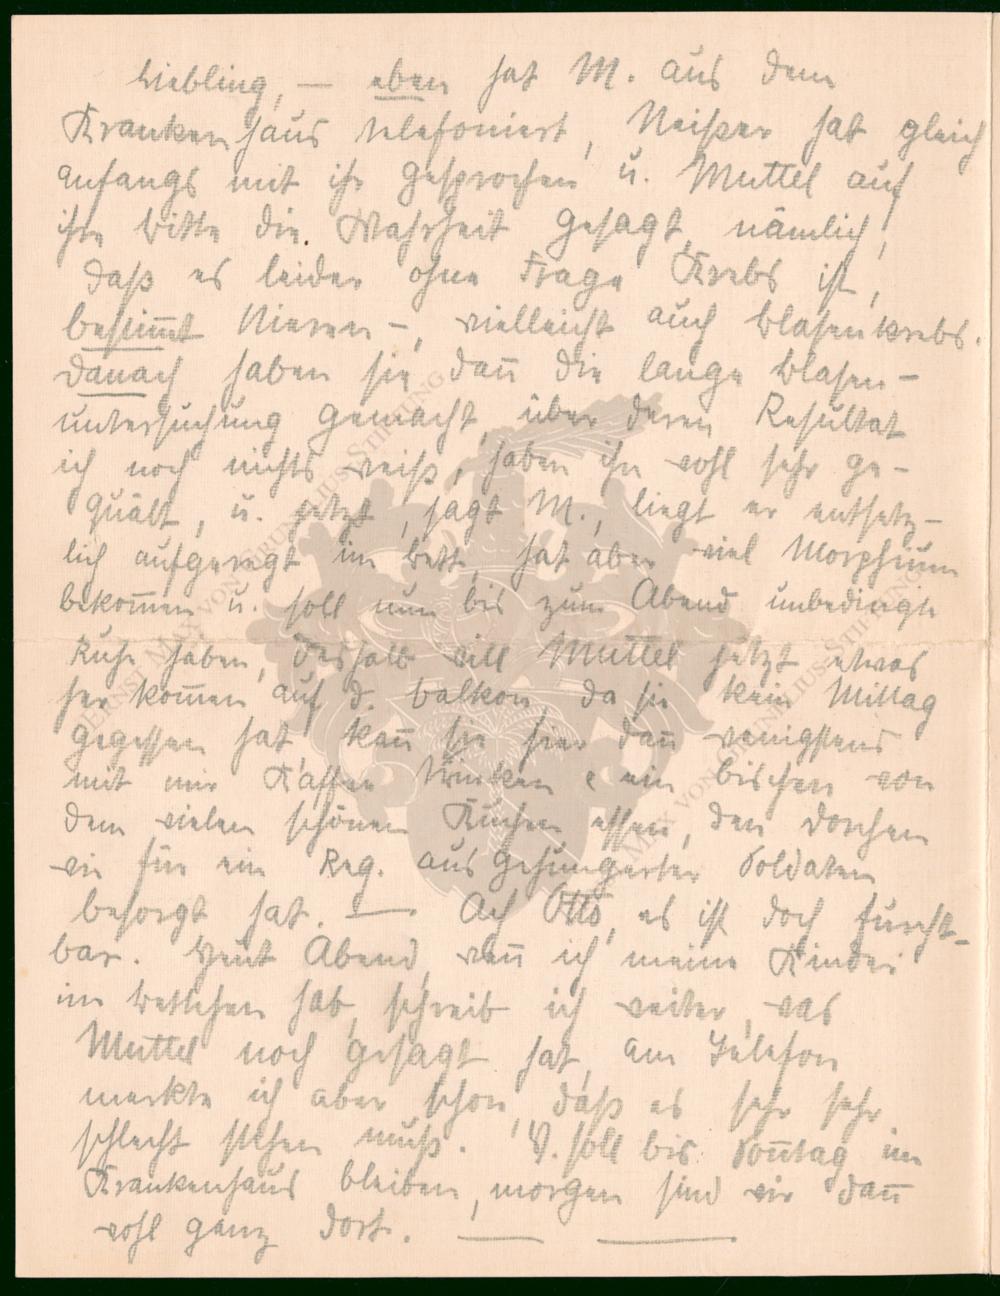 Liebling, — eben hat M. aus dem
Krankenhaus telefoniert, Neißer hat gleich
anfangs mit ihr gesprochen u. Muttel auf
ihre Bitte die Wahrheit gesagt, nämlich,
daß es leider ohne Frage Krebs ist,
bestim̄t Nieren-, vielleicht auch Blasenkrebs.
Danach haben sie dan̄ die lange Blasen-
untersuchung gemacht, über deren Resultat
ich noch nichts weiß, haben ihn wohl sehr ge-
quält, u. jetzt, sagt M., liegt er entsetz-
lich aufgeregt im Bett, hat aber viel Morphium
bekom̄en u. soll nun bis zum Abend unbedingte
Ruhe haben, deshalb will Muttel jetzt etwas
her kom̄en, auf d. Balkon, da sie kein Mittag
gegessen hat kan̄ sie hier dan̄ wenigstens
mit mir Kaffee trinken & ein bischen von
dem vielen schönen Kuchen essen, den Dorchen
wie für ein Reg. ausgehungerter Soldaten
besorgt hat. — Ach Otto, es ist doch furcht-
bar. Heut Abend, wen̄ ich meine Kinder
im Bettchen hab, schreib ich weiter, was
Muttel noch gesagt hat, am Telefon
merkte ich aber schon, daß es sehr sehr
schlecht stehen muß. V. soll bis Son̄tag im
Krankenhaus bleiben, morgen sind wir dan̄
wohl ganz dort. — —
ERNST MAX VON GRUNELIUS-STIFTUNG
ERNST MAX VON GRUNELIUS-STIFTUNG